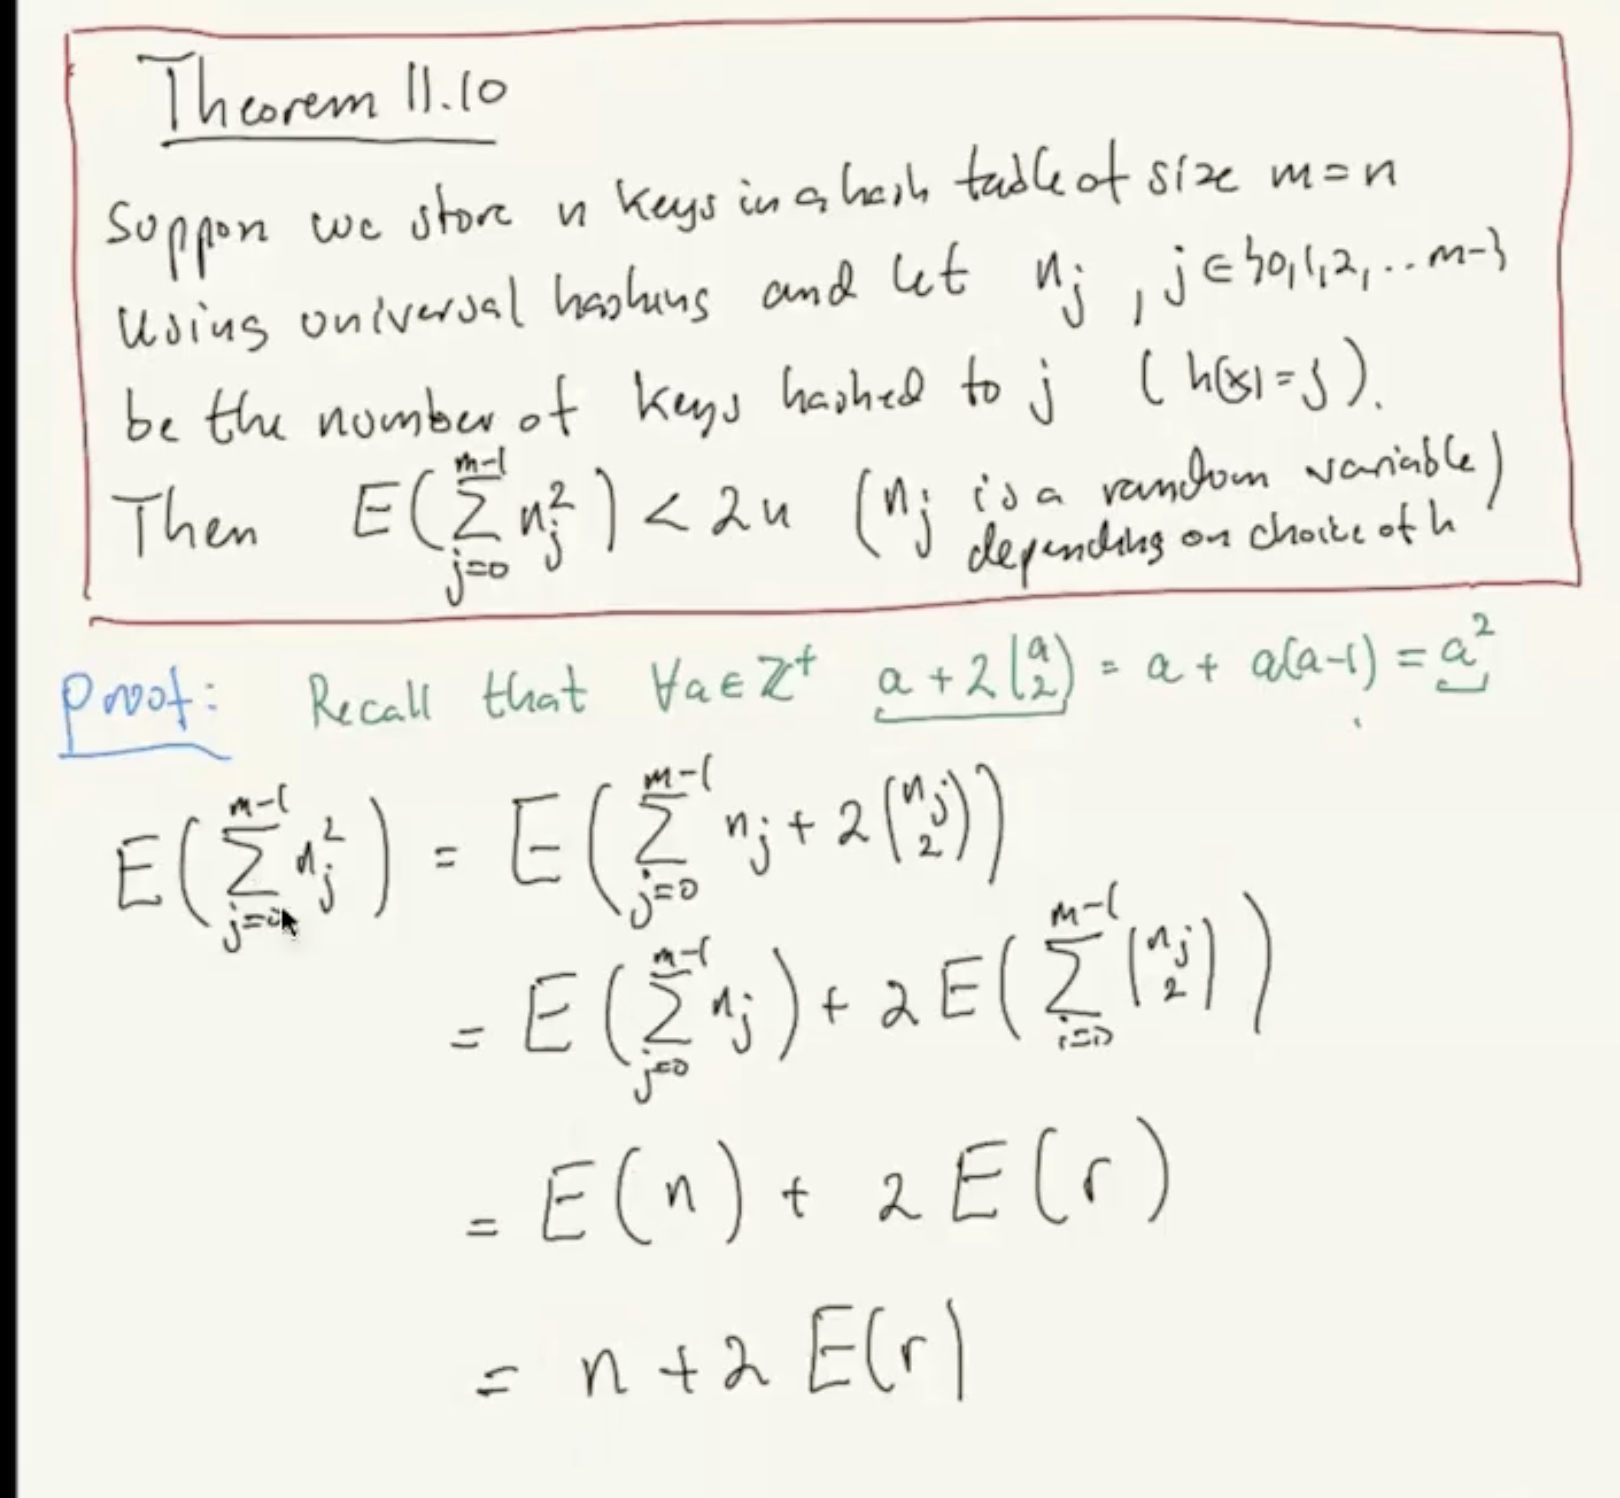 Theorem 11.10
Suppon we store n keys in a hash table of size m=n
Using universal hashing and let n_j , j ∈ {0,1,2,...m-}
be the number of keys hashed to j (h(x)=j).
Then E(∑_{j=0}^{m-1} n_j^2) < 2n (n_j is a random variable)
depending on choice of h
Proof: Recall that ∀a∈ℤ⁺ a+2(a 2) = a + a(a-1) = a²
E(∑_{j=0}^{m-1} n_j^2) = E(∑_{j=0}^{m-1} n_j + 2(n_j 2))
= E(∑_{j=0}^{m-1} n_j) + 2E(∑_{i=0}^{m-1} (n_j 2))
= E(n) + 2E(r)
= n + 2E(r)